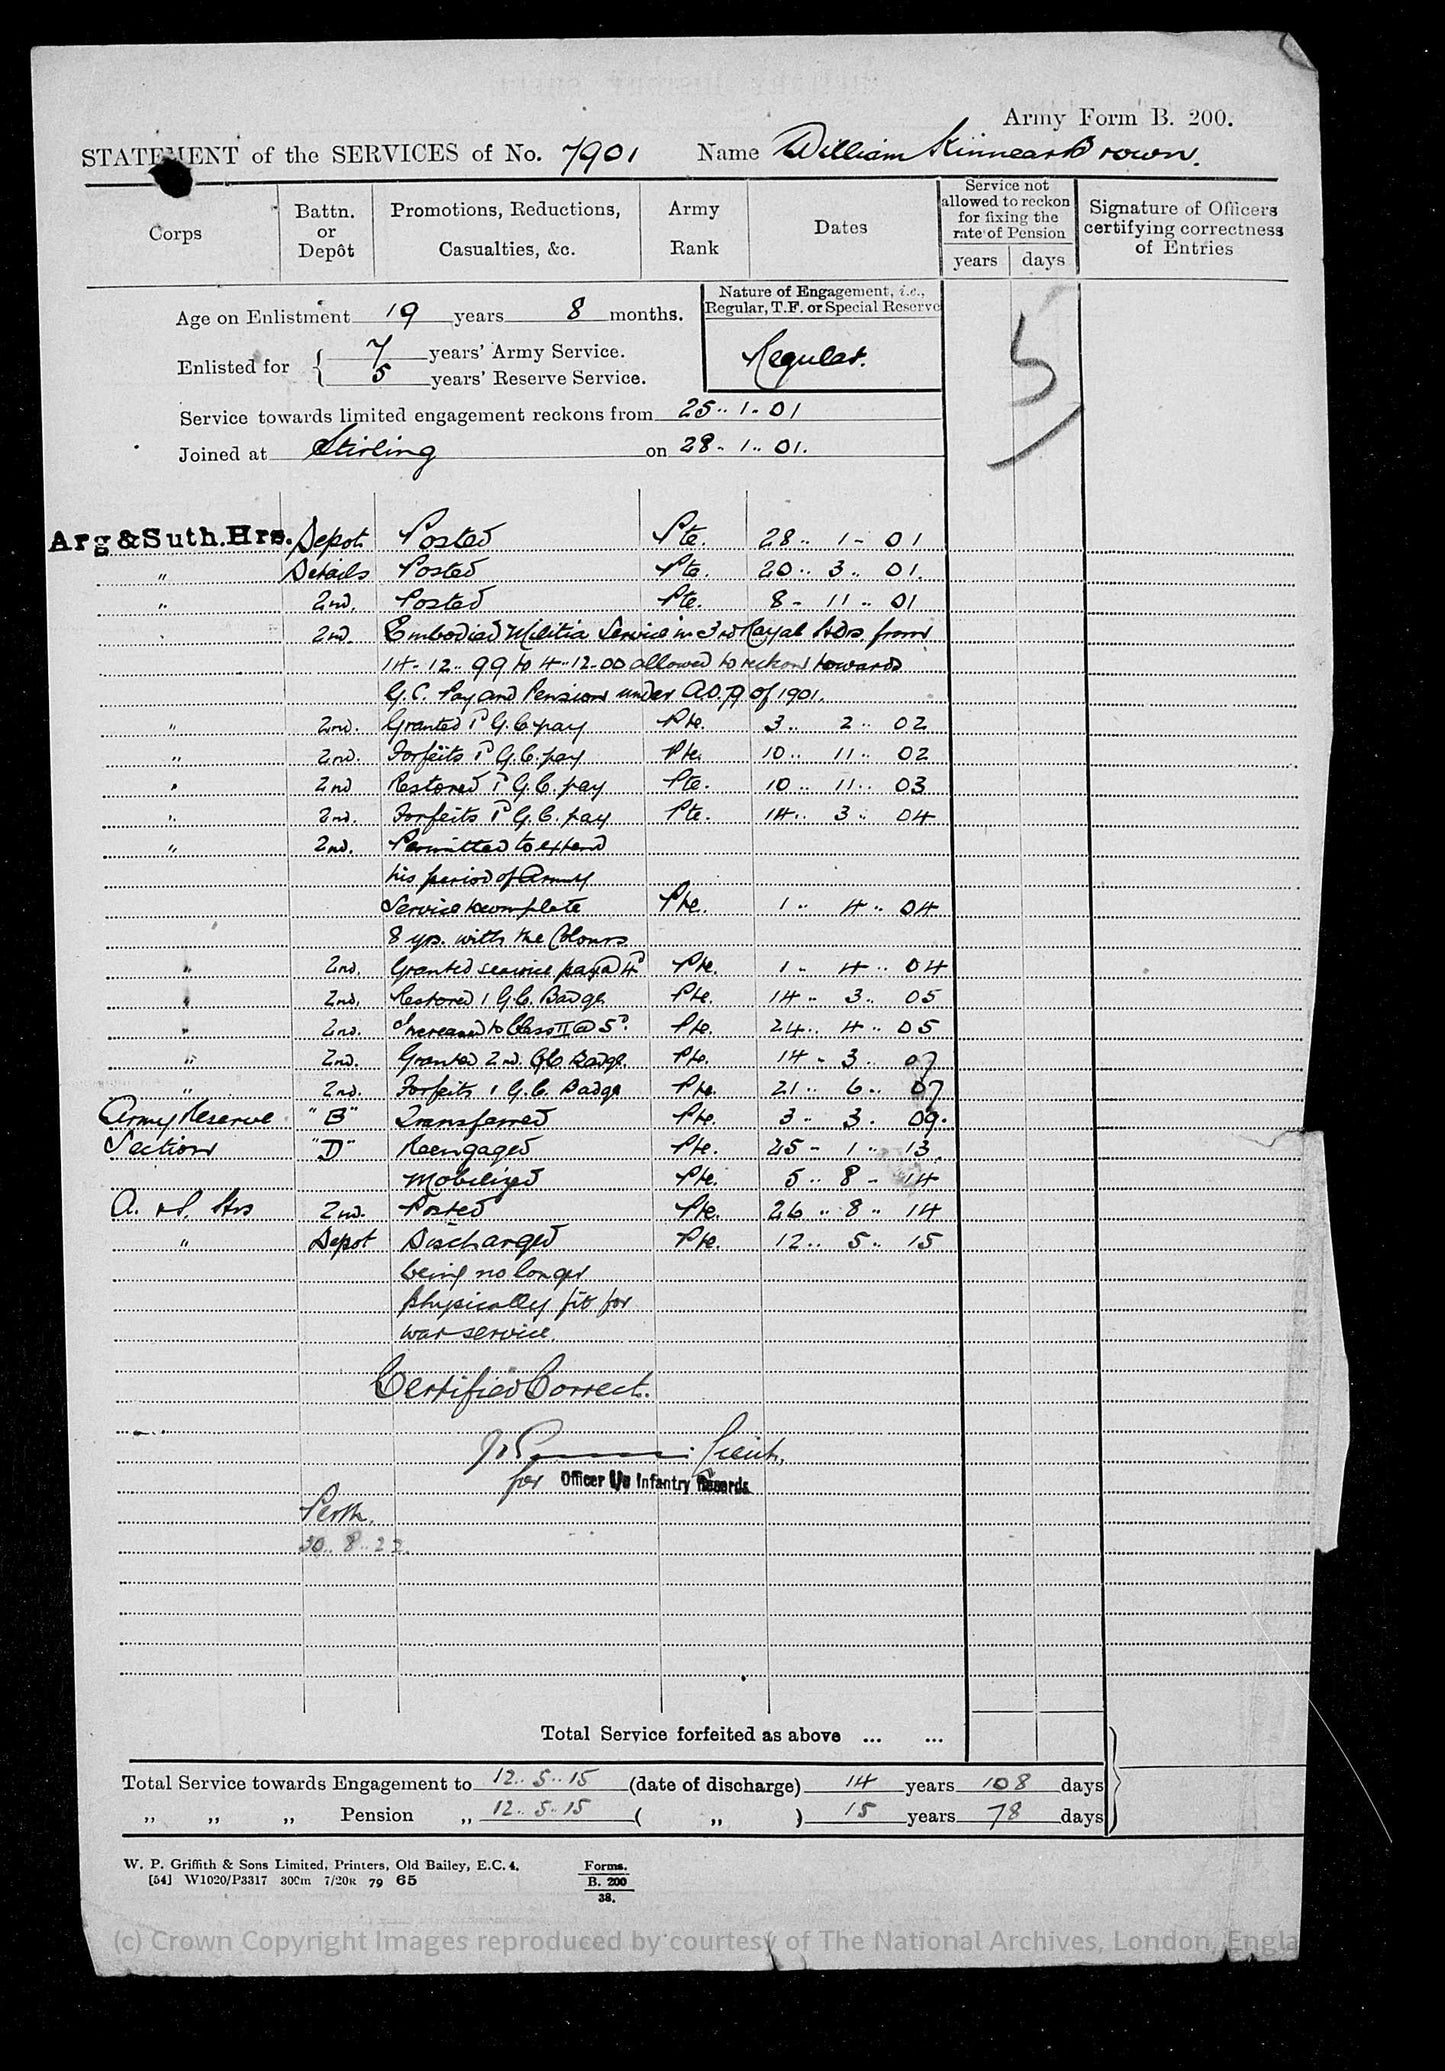 Army Form B. 200.
STATEMENT of the SERVICES of No. 7901 Name William Kinnear Brown.
Corps
Battn. or Depôt
Promotions, Reductions, Casualties, &c.
Army Rank
Dates
Service not allowed to reckon for fixing the rate of Pension
years days
Signature of Officers certifying correctness of Entries
Age on Enlistment 19 years 8 months.
Nature of Engagement, i.e., Regular, T.F. or Special Reserve
Regular.
Enlisted for { 7 years' Army Service.
5 years' Reserve Service.
5
Service towards limited engagement reckons from 25..1.01
Joined at Stirling on 28. 1.. 01.
Arg & Suth. Hrs. Depot Posted Pte. 28.. 1- 01
" Details Posted Pte. 20.. 3.. 01.
" 2nd. Posted Pte. 8- 11.. 01
" 2nd. Embodied Militia Service in 3rd Royal Hdrs. from
14-12..99 to 4-12-00 allowed to reckon towards
G.C. Pay and Pension under A.O. of 1901.
" 2nd. Granted 1d G.C. pay Pte. 3.. 2.. 02
" 2nd. Forfeits 1d G.C. pay Pte. 10.. 11.. 02
" 2nd Restored 1d G.C. pay Pte. 10.. 11.. 03
" 2nd. Forfeits 1d G.C. pay Pte. 14.. 3.. 04
" 2nd. Permitted to extend
his period of Army
Service to complete Pte. 1.. 4.. 04
8 yrs. with the Colours
" 2nd. Granted service pay @ 4d Pte. 1.. 4.. 04
" 2nd. Restored 1 G.C. Badge Pte. 14.. 3.. 05
" 2nd. Increased to Class II @ 5d. Pte. 24.. 4.. 05
" 2nd. Granted 2nd. GC Badge. Pte. 14- 3.. 07
" 2nd. Forfeits 1 G.C. Badge Pte. 21.. 6.. 07
Army Reserve "B" Transferred Pte. 3.. 3. 09.
Section "D" Reengaged Pte. 25- 1.. 13.
Mobilized Pte. 5.. 8- 14
A. & S. Hrs 2nd. Posted Pte. 26.. 8.. 14
" Depot Discharged Pte. 12.. 5.. 15
being no longer
physically fit for
war service.
Certified Correct.
Lieut.
for Officer i/c Infantry Records
Perth.
30..8..22.
Total Service forfeited as above ... ...
Total Service towards Engagement to 12..5..15 (date of discharge) 14 years 108 days
" " " Pension " 12..5..15 ( " ) 15 years 78 days
W. P. Griffith & Sons Limited, Printers, Old Bailey, E.C. 4.
[54] W1020/P3317 300m 7/20R 79 65
Forms.
B. 200
38.
(c) Crown Copyright Images reproduced by courtesy of The National Archives, London, Engla